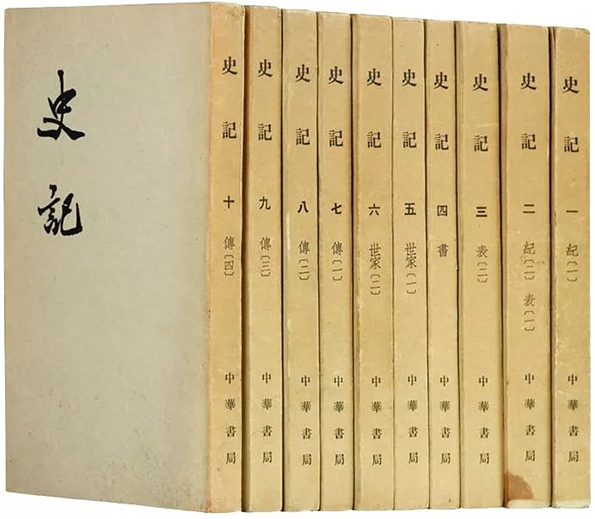 史記
史記 十 傳〔四〕 中華書局
史記 九 傳〔三〕 中華書局
史記 八 傳〔二〕 中華書局
史記 七 傳〔一〕 中華書局
史記 六 世家〔二〕 中華書局
史記 五 世家〔一〕 中華書局
史記 四 書 中華書局
史記 三 表〔二〕 中華書局
史記 二 紀〔二〕 表〔一〕 中華書局
史記 一 紀〔一〕 中華書局